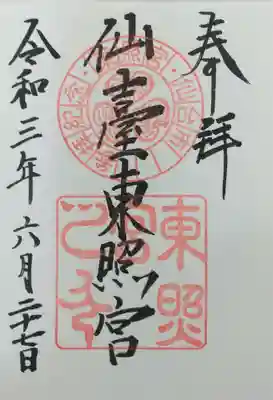 奉拝
仙臺東照宮
令和三年六月二十七日
東照
宮